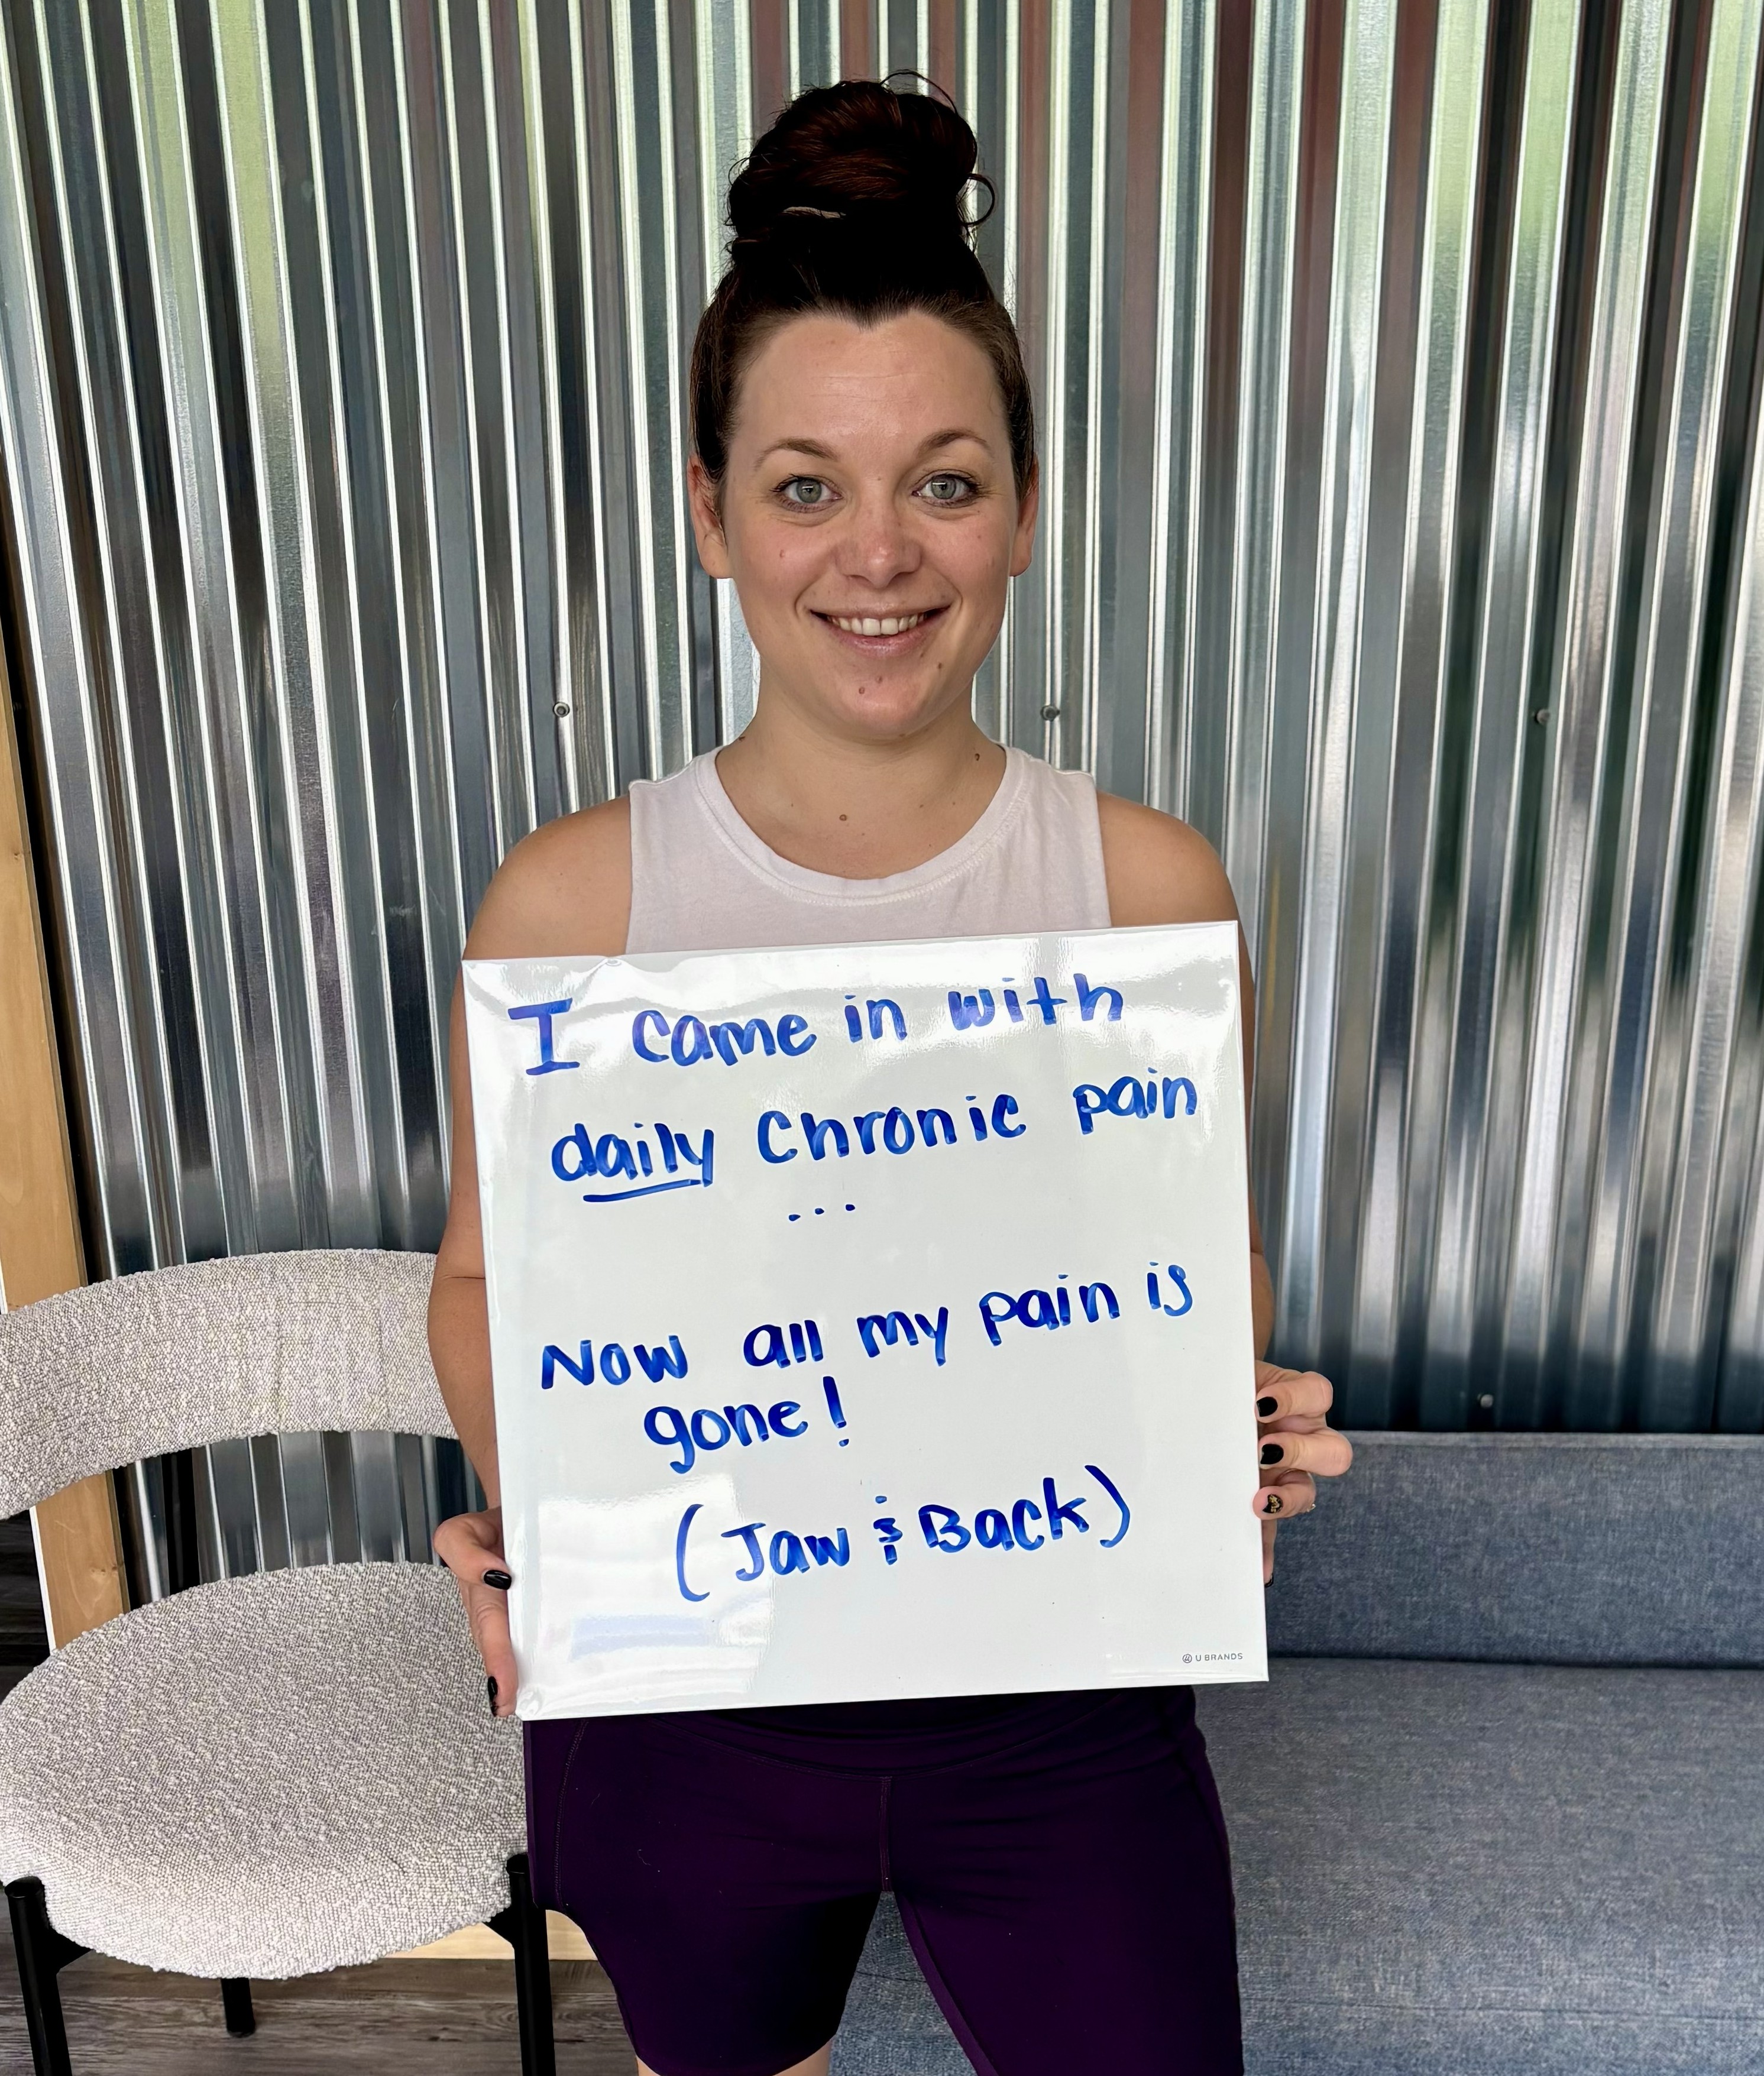 I came in with
daily Chronic pain
...
Now all my pain is
gone!
(Jaw & Back)
U BRANDS